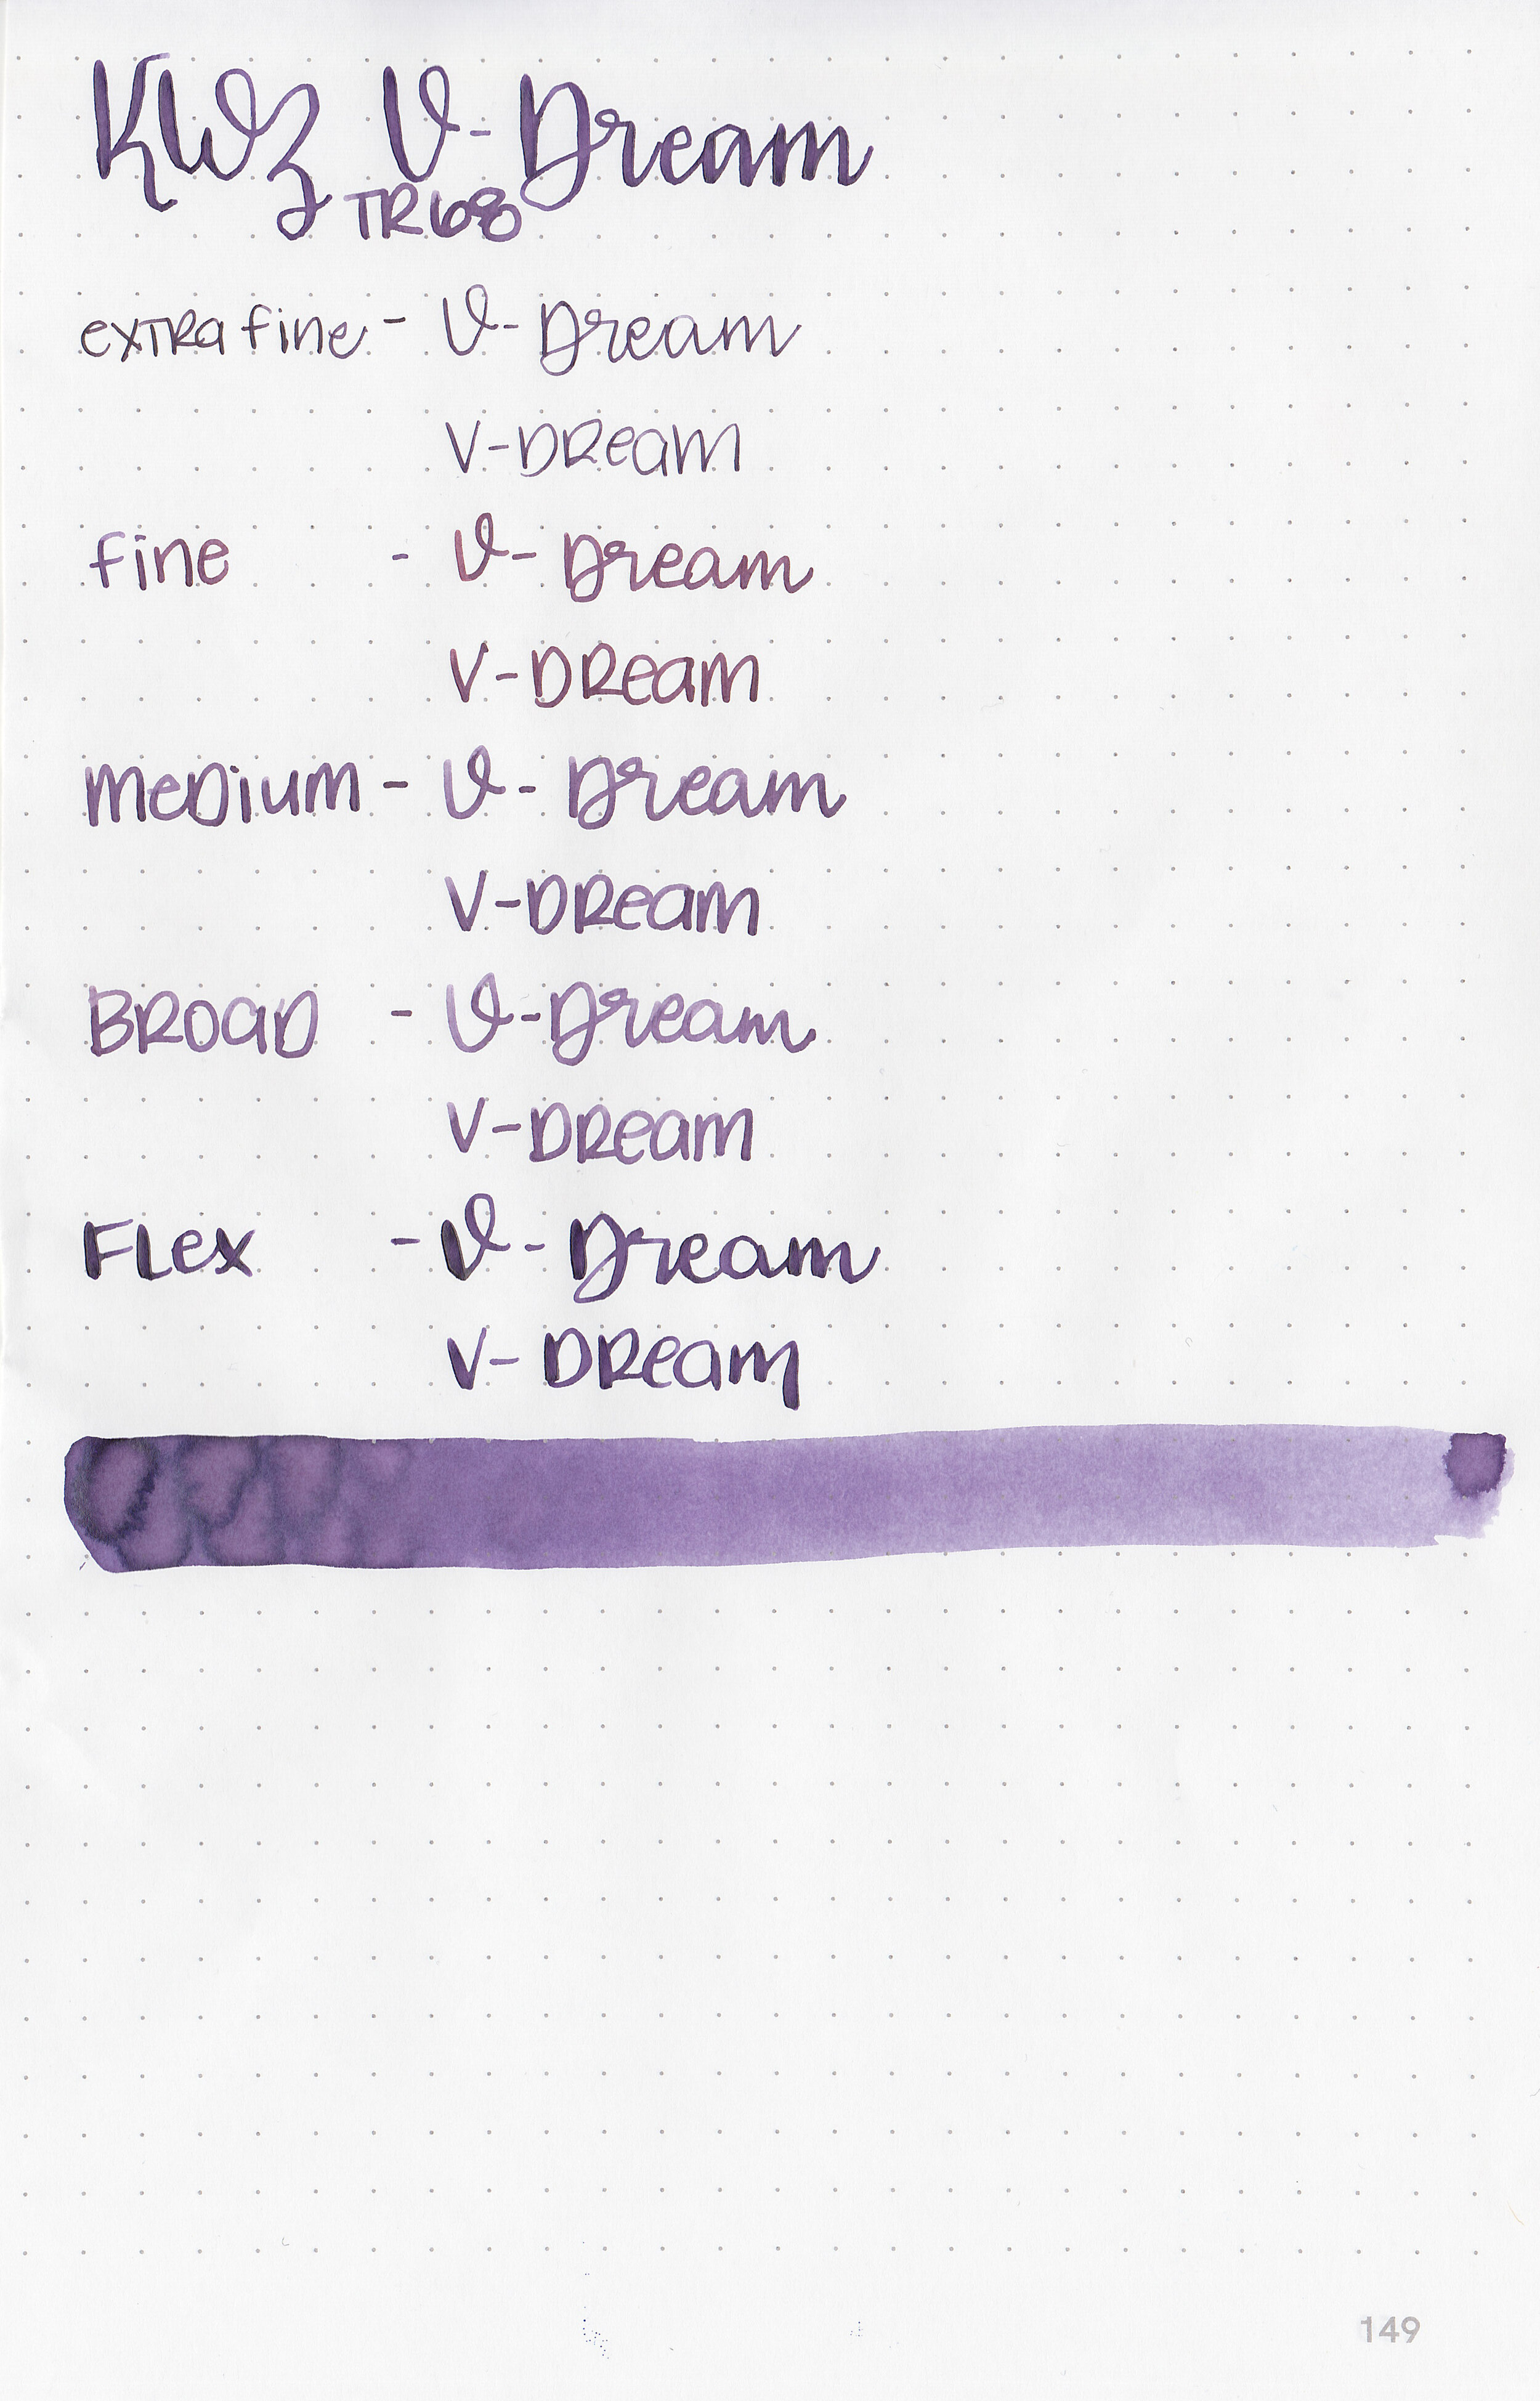 KWZ V-Dream
TR68
extra fine - V-Dream
V-Dream
fine - V-Dream
V-Dream
Medium - V-Dream
V-Dream
Broad - V-Dream
V-Dream
Flex - V-Dream
V-Dream
149